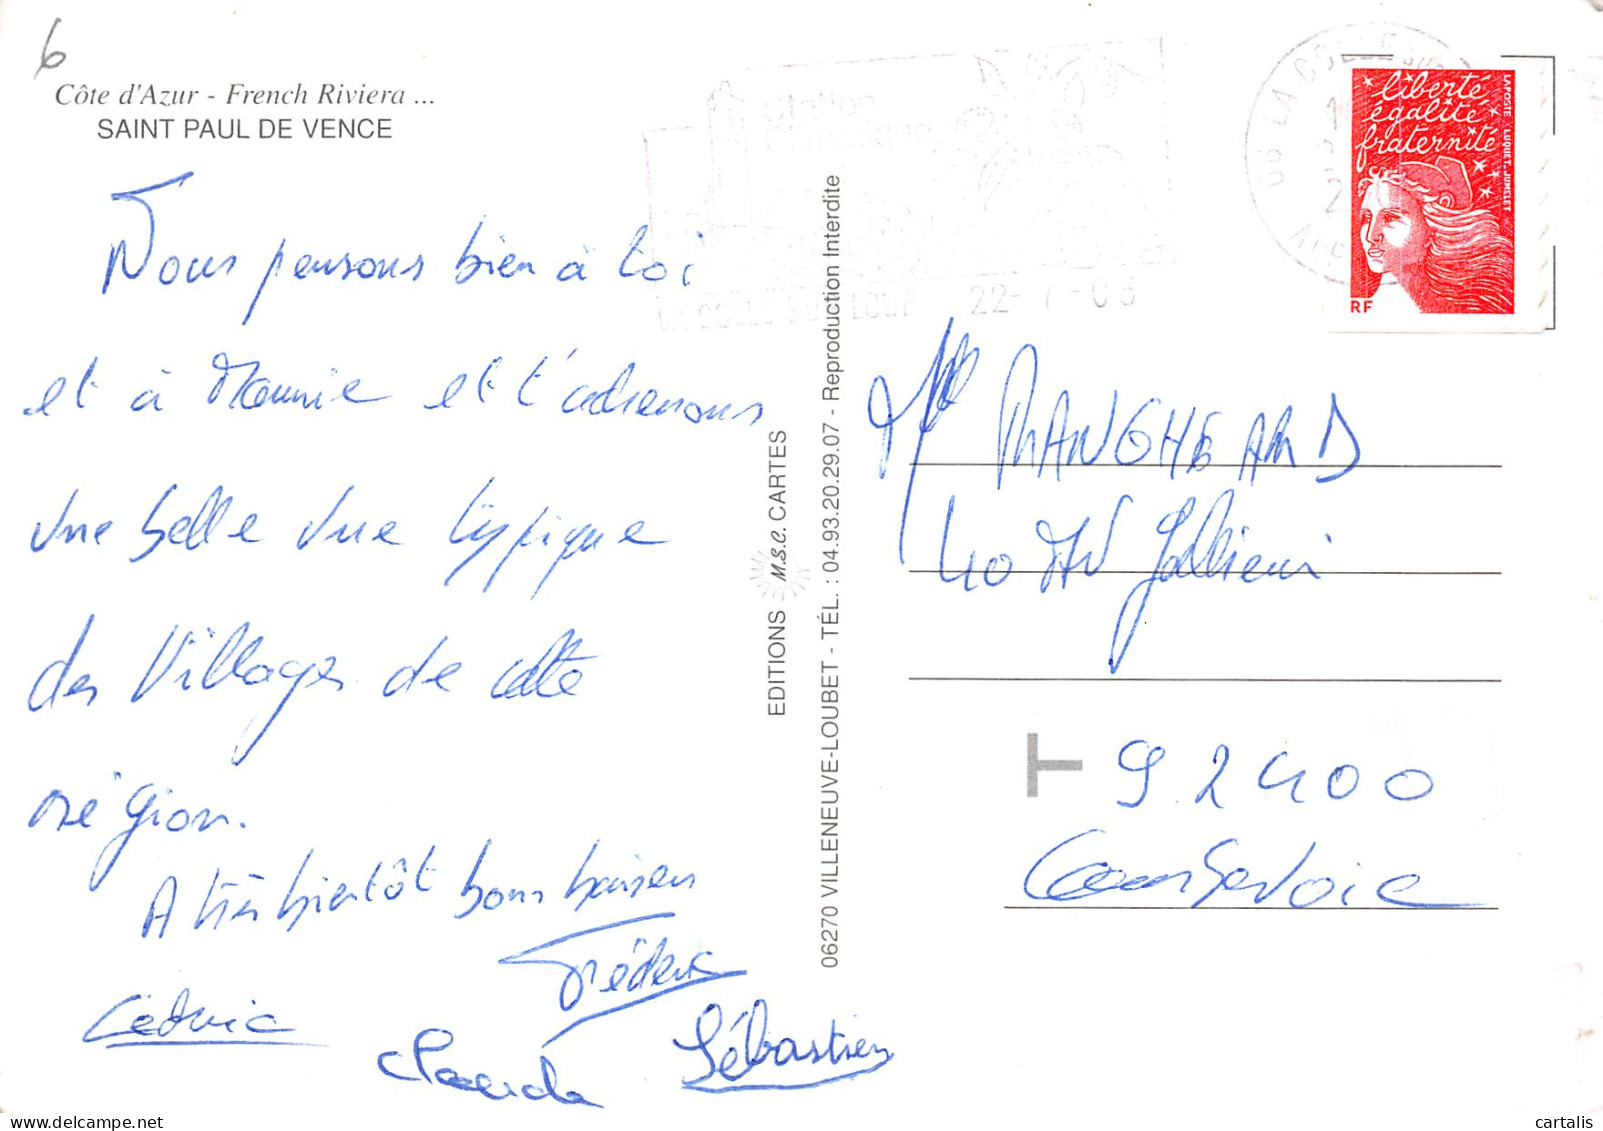 6
Côte d'Azur - French Riviera ...
SAINT PAUL DE VENCE
Nous pensons bien à toi
et à Mamie et t'adressons
une belle vue typique
des Villages de cette
région.
A très bientôt bons baisers
Frédéric
Cédric
Sébastien
EDITIONS M.S.C. CARTES
06270 VILLENEUVE-LOUBET - TÉL. : 04.93.20.29.07 - Reproduction Interdite
Station
LA COLLE SUR LOUP 22-7-03
06 LA COLLE SUR
liberté
égalité
fraternité
RF
LA POSTE LUQUET.JUMELET
40 AV Gallieni
T
92400
Courbevoie
cartalis
delcampe.net